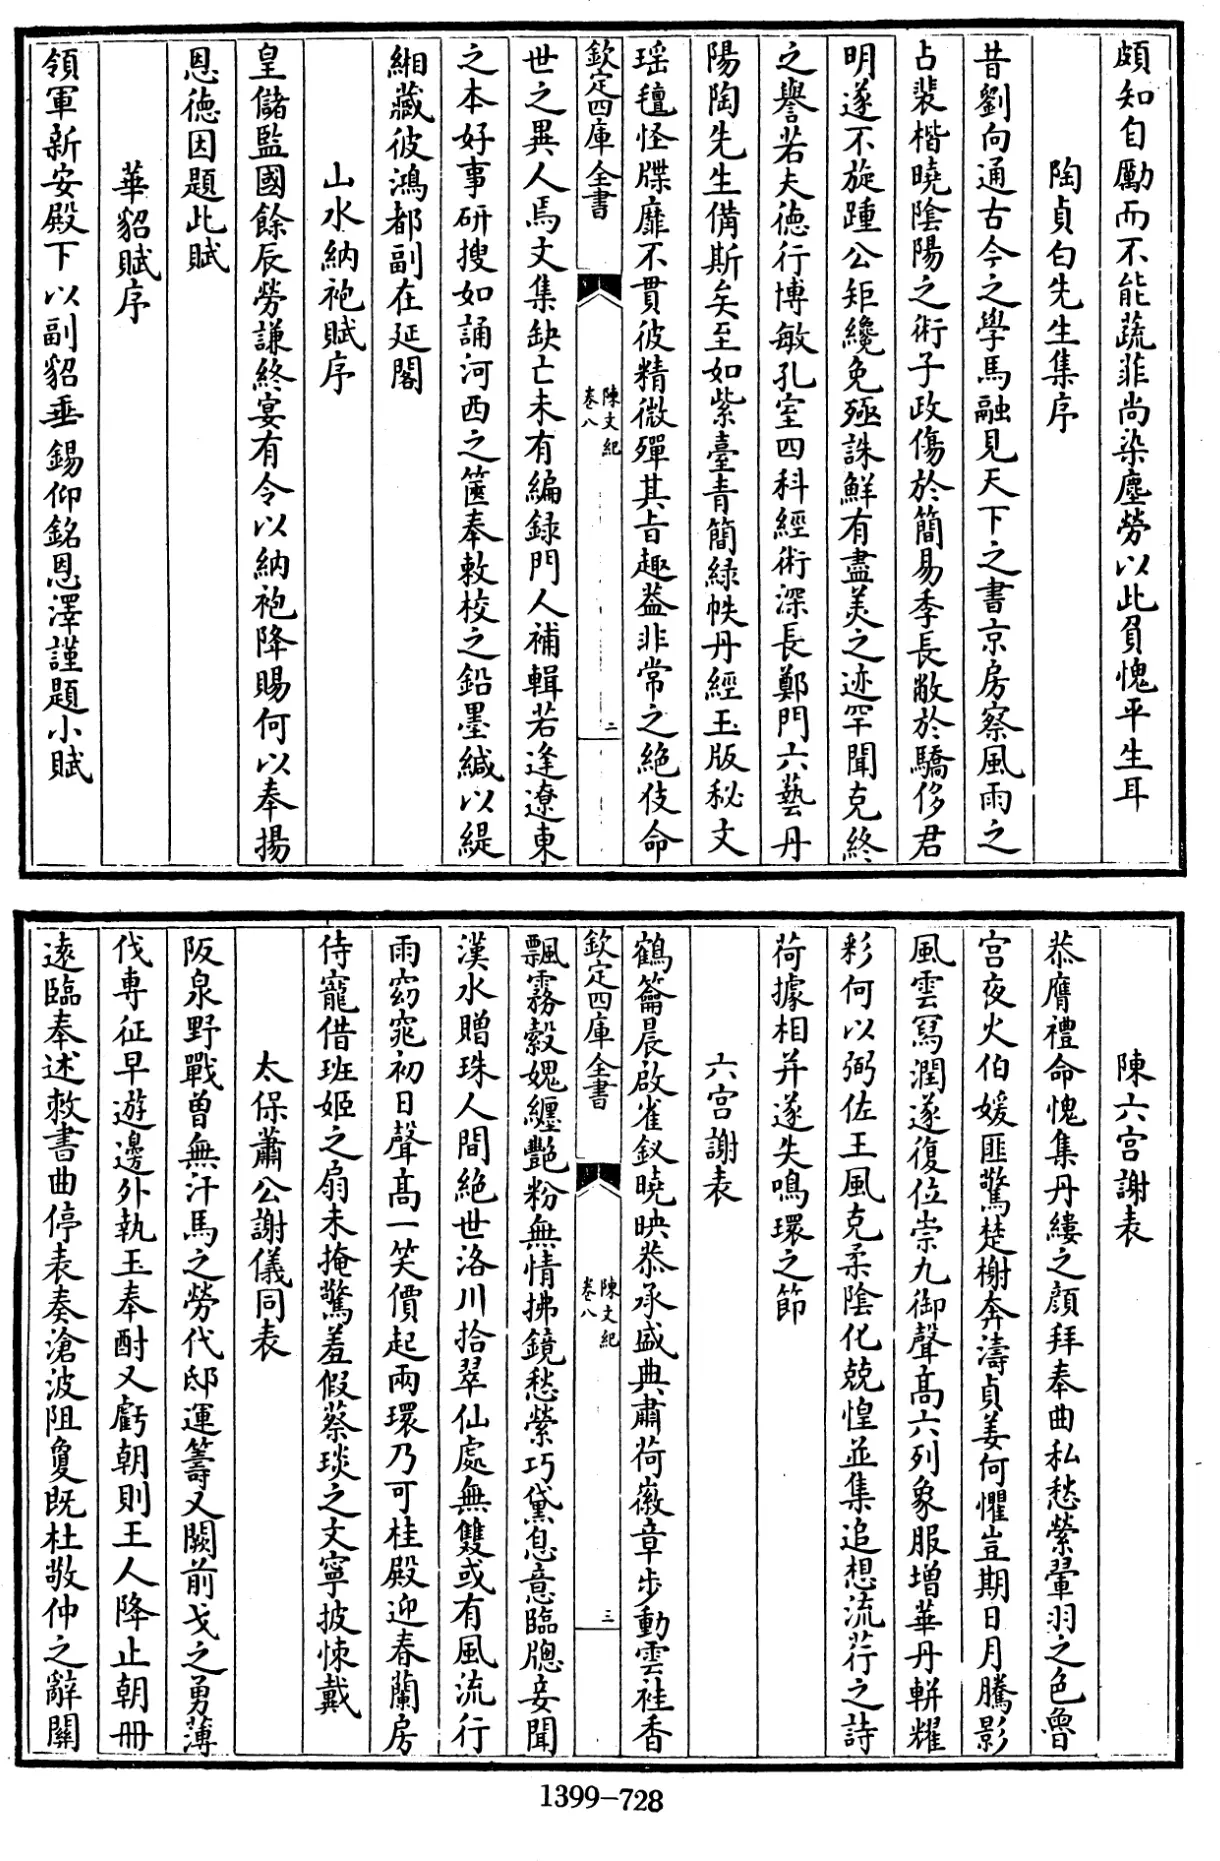 頗知自勵而不能蔬菲尚染塵勞以此負愧平生耳
陶貞白先生集序
昔劉向通古今之學馬融見天下之書京房察風雨之
占裴楷曉陰陽之術子政傷於簡易季長敝於驕侈君
明遂不旋踵公矩纔免殛誅鮮有盡美之迹罕聞克終
之譽若夫德行博敏孔室四科經術深長鄭門六藝丹
陽陶先生備斯矣至如紫臺青簡緑帙丹經玉版秘文
瑶壇怪牒靡不貫彼精微殫其㫖趣葢非常之絶伎命
欽定四庫全書
陳文紀
卷八
二
世之異人焉文集缺亡未有編録門人補輯若逢遼東
之本好事研搜如誦河西之篋奉敕校之鉛墨緘以緹
緗藏彼鴻都副在延閣
山水納袍賦序
皇儲監國餘辰勞謙終宴有令以納袍降賜何以奉揚
恩德因題此賦
華貂賦序
領軍新安殿下以副貂垂錫仰銘恩澤謹題小賦
陳六宮謝表
恭膺禮命愧集丹縷之顔拜奉曲私愁縈翬羽之色魯
宮夜火伯媛匪驚楚榭奔濤貞姜何懼豈期日月騰影
風雲寫潤遂復位崇九御聲髙六列象服増華丹軿耀
彩何以弼佐王風克柔陰化兢惶並集追想流荇之詩
荷據相并遂失鳴環之節
六宮謝表
鶴籥晨啟雀釵曉映恭承盛典肅荷徽章步動雲袿香
欽定四庫全書
陳文紀
卷八
三
飄霧縠媿纏艷粉無情拂鏡愁縈巧黛息意臨牕妾聞
漢水贈珠人間絶世洛川拾翠仙處無雙或有風流行
雨窈窕初日聲髙一笑價起兩環乃可桂殿迎春蘭房
侍寵借班姬之扇未掩驚羞假蔡琰之文寜披悚戴
太保蕭公謝儀同表
阪泉野戰曽無汗馬之勞代邸運籌又闕前戈之勇薄
伐専征早遊邊外執玉奉酎又虧朝則王人降止朝冊
逺臨奉述敕書曲停表奏滄波阻敻既杜敬仲之辭關
1399-728